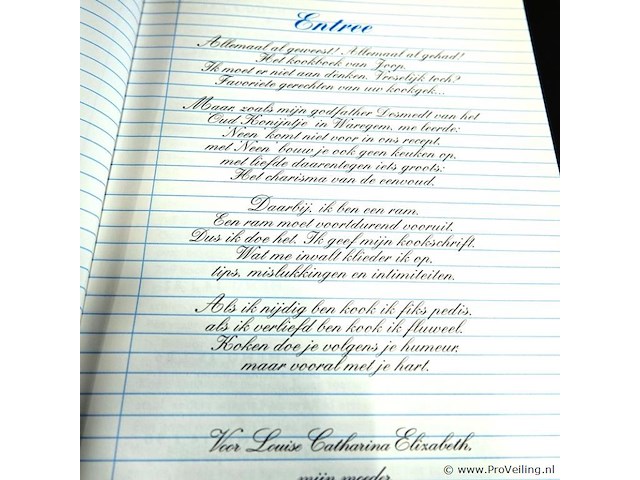 Entree
Allemaal al geweest? Allemaal al gehad?
Het kookboek van Joop.
Ik moet er niet aan denken. Vreselijk toch?
Favoriete gerechten van uw kookgek...
Maar, zoals mijn godfather Desmedt van het
Oud Konijntje in Waregem, me leerde:
'Neen' komt niet voor in ons recept,
met 'Neen' bouw je ook geen keuken op,
met liefde daarentegen iets groots:
Het charisma van de eenvoud.
Daarbij, ik ben een ram.
Een ram moet voortdurend vooruit.
Dus ik doe het. Ik geef mijn kookschrift.
Wat me invalt klieder ik op,
tips, mislukkingen en intimiteiten.
Als ik nijdig ben kook ik fiks pedis,
als ik verliefd ben kook ik fluweel.
Koken doe je volgens je humeur,
maar vooral met je hart.
Voor Louise Catharina Elizabeth,
mijn moeder
© www.ProVeiling.nl